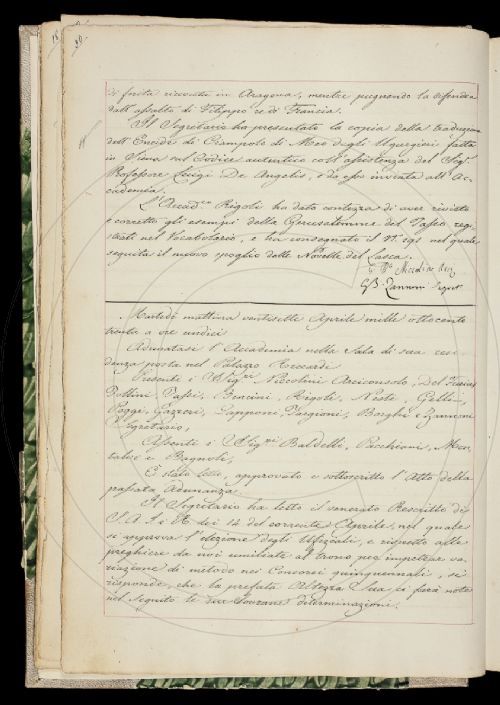 di ferita ricevuta in Aragona, mentre pugnando la difendea
dall'assalto di Filippo re di Francia.
Il Segretario ha presentata la copia della traduzione
dell'Eneide di Ciampolo di Meo degli Ugurgieri fatta
in Siena sul Codice autentico coll'assistenza del Sig.
Professore Luigi De Angelis, e da esso inviata all'Ac-
cademia.
L'Accad. Rigoli ha dato contezza di aver rivisto
e corretto gli esempi della Gerusalemme del Tasso regi-
strati nel Vocabolario, e ha consegnato il N. nel quale
seguita il nuovo spoglio delle Novelle del Lasca.
Zannoni Segret.
Martedì mattina ventisette Aprile mille ottocento
trenta a ore undici
Adunatasi l'Accademia nella Sala di sua resi-
denza posta nel Palazzo Riccardi
Presenti i Sig.ri Niccolini Arciconsolo, Del Furia,
Follini, Tassi, Bencini, Rigoli, Nesti, Gelli,
Poggi, Gazzeri, Capponi, Targioni, Borghi e Zannoni
Segretario,
Assenti i Sig.ri Baldelli, Pacchiani, Mon-
talvi e Bagnoli,
È stato letto, approvato e sottoscritto l'Atto della
passata Adunanza.
Il Segretario ha letto il venerato Rescritto di
S. A. I. e R. dei 14 del corrente Aprile, nel quale
si approva l'elezione degli Ufiziali, e rispetto alle
preghiere da noi umiliate al trono per impetrar va-
riazione di metodo nei Concorsi quinquennali, si
risponde, che la prefata Altezza Sua ci farà note
nel seguito le sue sovrane determinazioni.